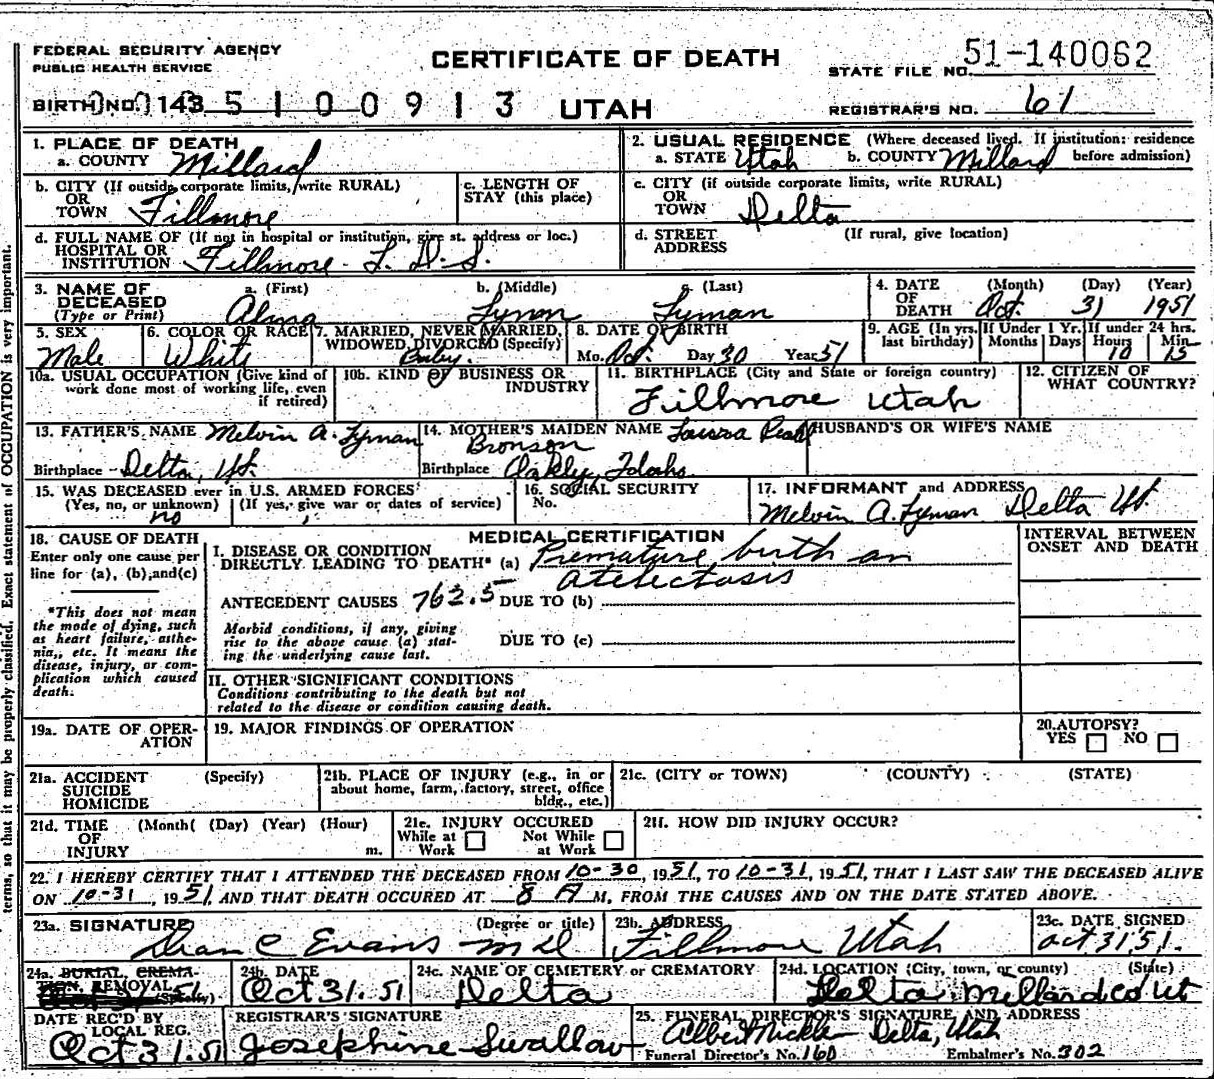 FEDERAL SECURITY AGENCY
PUBLIC HEALTH SERVICE
CERTIFICATE OF DEATH
UTAH
STATE FILE NO. 51-140062
BIRTH NO. 143 5 1 0 0 9 1 3
REGISTRAR'S NO. 61
1. PLACE OF DEATH
a. COUNTY Millard
2. USUAL RESIDENCE (Where deceased lived. If institution: residence before admission)
a. STATE Utah b. COUNTY Millard
b. CITY (If outside corporate limits, write RURAL)
OR
TOWN Fillmore
c. LENGTH OF
STAY (this place)
c. CITY (if outside corporate limits, write RURAL)
OR
TOWN Delta
d. FULL NAME OF (If not in hospital or institution, give st. address or loc.)
HOSPITAL OR
INSTITUTION Fillmore L. D. S.
d. STREET (If rural, give location)
ADDRESS
3. NAME OF DECEASED
(Type or Print)
a. (First) b. (Middle) c. (Last)
Alma Lynn Lyman
4. DATE OF DEATH (Month) (Day) (Year)
Oct. 31 1951
5. SEX
Male
6. COLOR OR RACE
White
7. MARRIED, NEVER MARRIED,
WIDOWED, DIVORCED (Specify)
Baby.
8. DATE OF BIRTH
Mo. Oct. Day 30 Year 51
9. AGE (In yrs. last birthday) If Under 1 Yr. Months Days If under 24 hrs. Hours Min.
10 15
10a. USUAL OCCUPATION (Give kind of
work done most of working life, even
if retired)
10b. KIND OF BUSINESS OR
INDUSTRY
11. BIRTHPLACE (City and State or foreign country)
Fillmore Utah
12. CITIZEN OF
WHAT COUNTRY?
13. FATHER'S NAME Melvin A. Lyman
Birthplace - Delta, Ut.
14. MOTHER'S MAIDEN NAME Laura Pearl
Bronson
Birthplace Oakly, Idaho.
HUSBAND'S OR WIFE'S NAME
15. WAS DECEASED ever in U.S. ARMED FORCES?
(Yes, no, or unknown) (If yes, give war or dates of service)
no
16. SOCIAL SECURITY
No.
17. INFORMANT and ADDRESS
Melvin A. Lyman Delta Ut.
18. CAUSE OF DEATH
Enter only one cause per
line for (a), (b), and (c)
*This does not mean
the mode of dying, such
as heart failure, asthe-
nia, etc. It means the
disease, injury, or com-
plication which caused
death.
MEDICAL CERTIFICATION
I. DISEASE OR CONDITION
DIRECTLY LEADING TO DEATH* (a) Premature birth an
atelectasis
ANTECEDENT CAUSES 762.5 DUE TO (b)
Morbid conditions, if any, giving
rise to the above cause (a) stat-
ing the underlying cause last.
DUE TO (c)
II. OTHER SIGNIFICANT CONDITIONS
Conditions contributing to the death but not
related to the disease or condition causing death.
INTERVAL BETWEEN
ONSET AND DEATH
19a. DATE OF OPER-
ATION
19. MAJOR FINDINGS OF OPERATION
20. AUTOPSY?
YES NO
21a. ACCIDENT (Specify)
SUICIDE
HOMICIDE
21b. PLACE OF INJURY (e.g., in or
about home, farm, factory, street, office
bldg., etc.)
21c. (CITY or TOWN) (COUNTY) (STATE)
21d. TIME (Month( (Day) (Year) (Hour)
OF
INJURY m.
21e. INJURY OCCURED
While at Work Not While at Work
21f. HOW DID INJURY OCCUR?
22. I HEREBY CERTIFY THAT I ATTENDED THE DECEASED FROM 10-30, 1951, TO 10-31, 1951, THAT I LAST SAW THE DECEASED ALIVE
ON 10-31, 1951, AND THAT DEATH OCCURED AT 8 A M, FROM THE CAUSES AND ON THE DATE STATED ABOVE.
23a. SIGNATURE (Degree or title)
Dean C Evans M D
23b. ADDRESS
Fillmore Utah
23c. DATE SIGNED
Oct 31 51.
24a. BURIAL, CREMA-
TION, REMOVAL (Specify)
51
24b. DATE
Oct 31. 51
24c. NAME OF CEMETERY or CREMATORY
Delta
24d. LOCATION (City, town, or county) (State)
Delta. Millard co Ut
DATE REC'D BY
LOCAL REG.
Oct 31. 51
REGISTRAR'S SIGNATURE
Josephine Swallow
25. FUNERAL DIRECTOR'S SIGNATURE AND ADDRESS
Delta, Utah
Funeral Director's No. 160 Embalmer's No. 302
terms, so that it may be properly classified. Exact statement of OCCUPATION is very important.